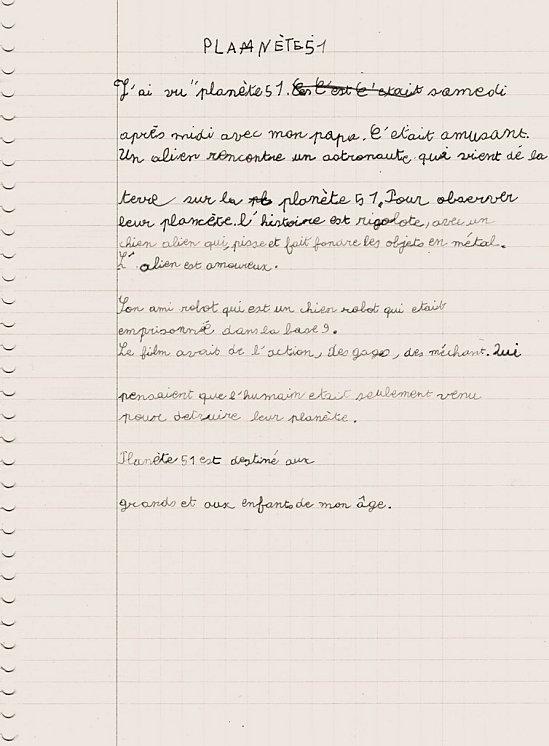 PLAANÈTE 51
J'ai vu "planète 51. samedi
après midi avec mon papa. C'etait amusant.
Un alien rencontre un astronaute qui vient dé la
terre sur la planète 51. Pour observer
leur plancète. l'histoire est rigolote, avec un
chien alien qui pisse et fait fondre les objets en métal.
L'alien est amoureux.
Son ami robot qui est un chien robot qui etait
emprisonné dans la base 9.
Le film avait de l'action, des gags, des méchant. Qui
pensaient que l'humain etait seulement venu
pour detruire leur planète.
Planète 51 est destiné aux
grands et aux enfants de mon âge.